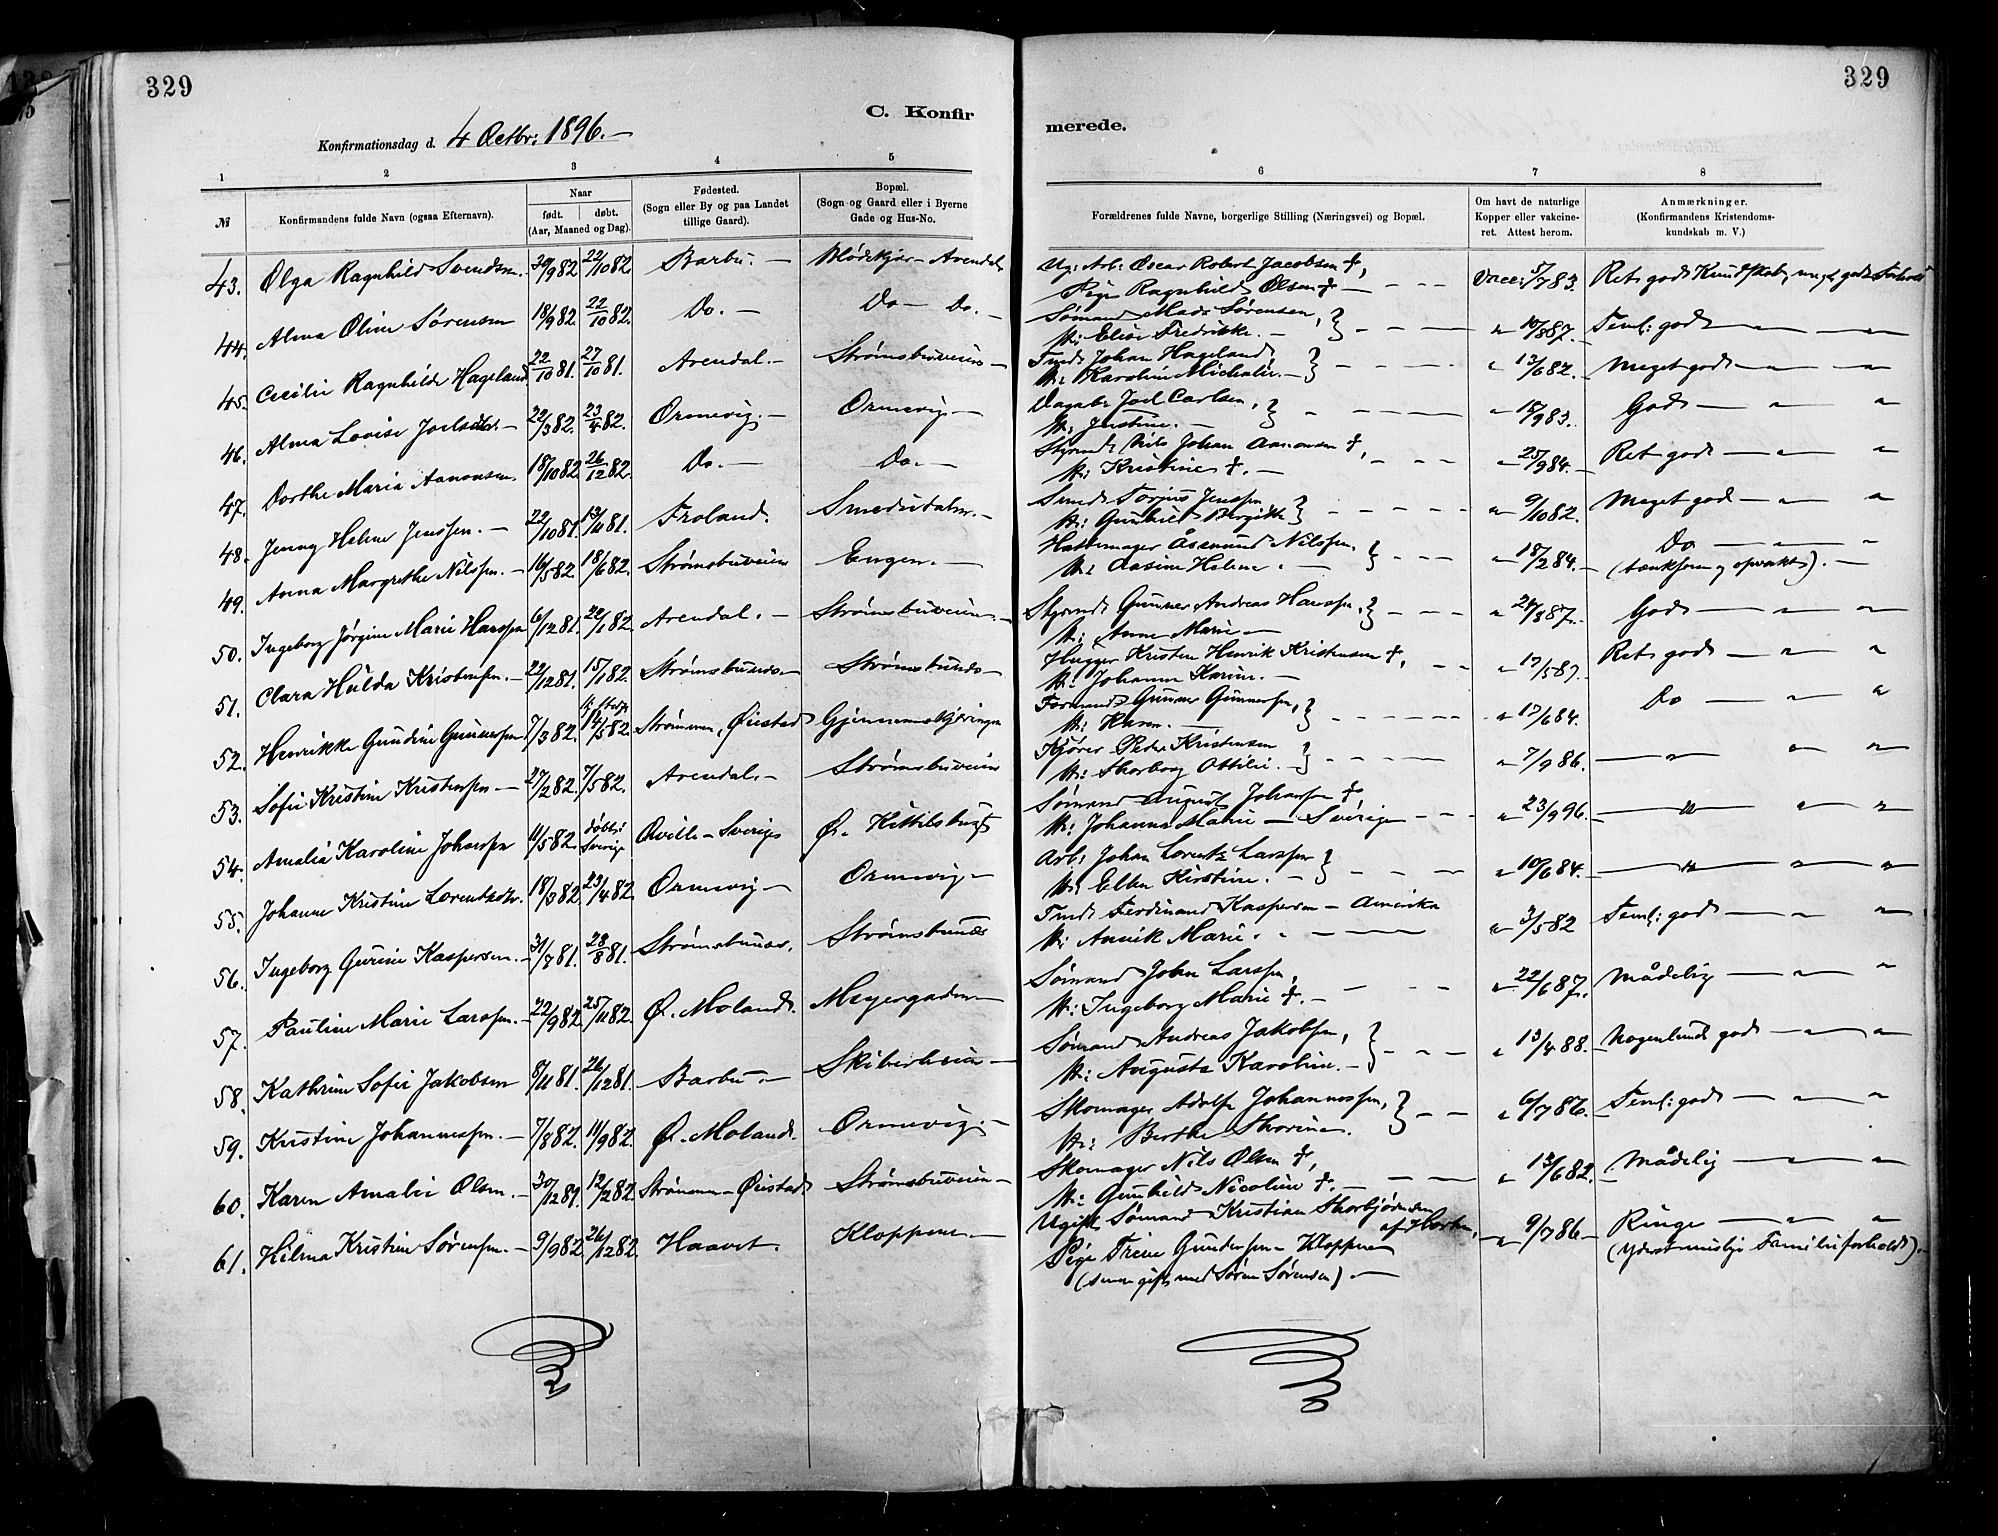 329
329
C. Konfir
merede.
Konfirmationsdag d. 4 Octbr: 1896. —
1 2 3 4 5 6 7 8
№ Konfirmandens fulde Navn (ogsaa Efternavn). Naar født. døbt. (Aar, Maaned og Dag). Fødested. (Sogn eller By og paa Landet tillige Gaard). Bopæl. (Sogn og Gaard eller i Byerne Gade og Hus-No. Forældrenes fulde Navne, borgerlige Stilling (Næringsvei) og Bopæl. Om havt de naturlige Kopper eller vakcineret. Attest herom. Anmærkninger. (Konfirmandens Kristendomskundskab m. V.)
43. Olga Ragnhild Svendsen. 30/9 82 22/10 82 Barbu. — Blødekjær – Arendal Ug: Arb: Oscar Robert Jacobsen †,
Pige Ragnhild Olsen † — Vacc: 5/7 83. Ret god Kundskab, meget god Forhold
44. Alma Oline Sørensen 18/9 82. 22/10 82. Do. — Do — Do. — Sømand Mads Sørensen,
H: Elise Fredrikke. — 10/8 87. Teml: god — " "
45. Cecilie Ragnhilde Hageland 22/10 81. 27/10 81. Arendal. — Strømsbuveien — Tmd Johan Hageland,
H: Karoline Michalie. — 13/6 82. — Meget god — " —
46. Alma Lovise Joelsdtr. — 22/3 82. 23/4 82. Ormevig. — Ormevig. — Dagarb: Joel Carlsen,
H: Justine. — 15/9 83. God — " "
47. Dorthe Maria Aanonsen. 18/10 82 26/12 82. Do. — Do. — Styrmd Nils Johan Aanonsen †,
H: Kristine †. — 25/9 84. — Ret god — " "
48. Jenny Helene Jenssen. — 22/10 81. 13/11 81. Froland. Smededalen. — Smed Torjus Jenssen
H: Gunhild Birgitte 9/10 82. Meget god — " "
49. Anna Margrethe Nilssen. — 16/5 82. 18/6 82. Strømsbuveien Engen. — Hattemager Aasmund Nilssen,
H: Aasine Helene. — 18/2 84. — Do — " (tænksom og opvakt). —
50. Ingeborg Jørgine Marie Hanssen 6/12 81. 22/1 82 Arendal. — Strømsbuveien. — Styrmd Gunner Andreas Hanssen,
H: Anne Marie — 24/8 87. God — " —
51. Clara Hulda Kristensen. — 22/12 81. 15/1 82. Strømsbunes — Strømsbunes — Hugger Kristen Henrik Kristensen †,
H: Johanne Karine. — 17/5 87. Ret god — " "
52. Henrikke Gundine Gunnersen 7/3 82. 14/5 82. Strømmen, Øiestad Gjennemskjæringen Formand Gunner Gunnersen,
H: Karen. — 17/6 84. Do — " "
53. Sofie Kristine Kristensen — 27/2 82. 7/5 82. Arendal. — Strømsbuveien Kjører Peder Kristensen
H: Thorborg Ottilie. — 7/9 86. — " —
54. Amalia Karoline Johansen 11/5 82. døbt i Sverige Qville – Sverige Ø. Kittilsbugt Sømand August Johansen †
H: Johanna Maria — Sverige 23/9 96. — " —
55. Johanne Kristine Lorentsdtr. 18/3 82. 23/4 82. Ormevig — Ormevig — Arb: Johan Lorentz Larssen
H: Ellen Kirstine. — 10/6 84. — " —
56. Ingeborg Gurine Kaspersen. — 31/7 81. 28/8 81. Strømsbunes. Strømsbunes Tmd Ferdinand Kaspersen — Amerika
H: Annik Marie. — 3/5 82 Teml: god — " "
57. Pauline Marie Larssen. — 22/9 82. 25/11 82. Ø. Moland. Meyergaden — Sømand John Larssen,
H: Ingeborg Marie †. — 22/6 87. Mådelig — "
58. Kathrine Sofie Jakobsen 8/11 81. 26/12 81. Barbu. — Skiberheien — Sømand Andreas Jakobsen,
H: Augusta Karoline. — 13/4 88. Nogenlunde god — " "
59. Kristine Johannessen. — 7/8 82. 11/9 82. Ø. Moland. Ormevig. — Skomager Adolf Johannessen,
H: Berthe Thorine. 6/7 86. Teml: god — " —
60. Karen Amalie Olsen. — 30/12 81. 12/2 82. Strømmen – Øiestad Strømsbuveien — Skomager Nils Olsen †,
H: Gunhild Nicoline †. — 13/6 82. Mådelig — " "
61. Hilma Kristine Sørensen. — 9/9 82. 26/12 82. Haavet. Kloppene. — Ugift Sømand Kristian Thorbjørnsen af Horten,
Pige Trine Gundersen – Kloppene
(senere gift med Søren Sørensen). — 9/7 86 — Ringe — " "
(yderst uselige Familieforhold). —